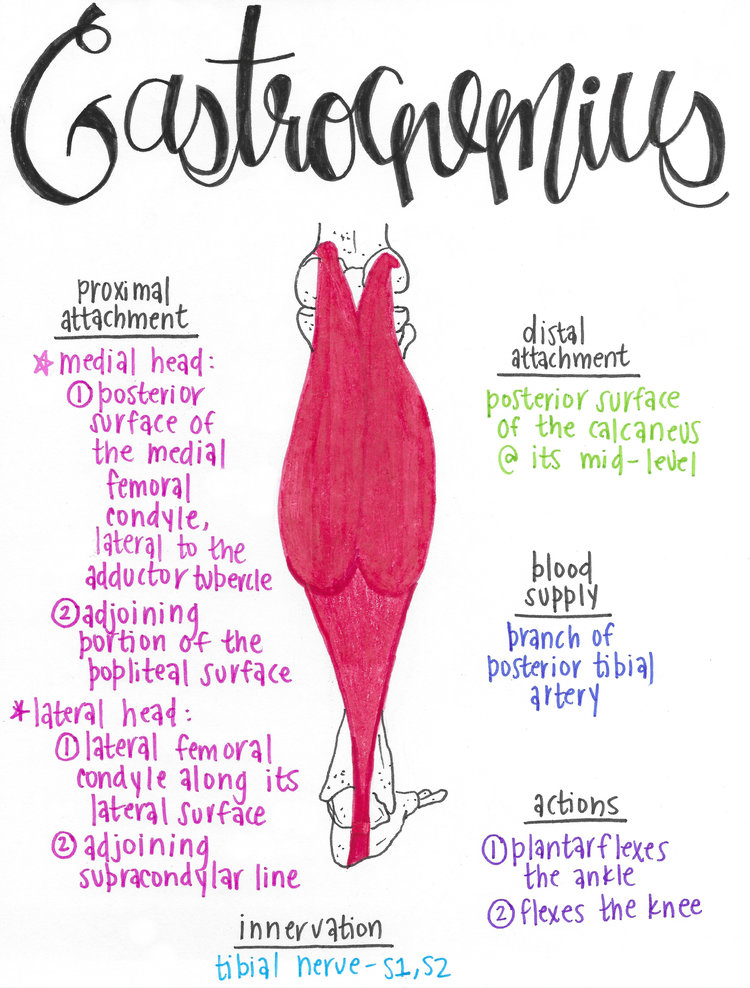 Gastrocnemius
proximal
attachment
☆ medial head:
① posterior
surface of
the medial
femoral
condyle,
lateral to the
adductor tubercle
② adjoining
portion of the
popliteal surface
* lateral head:
① lateral femoral
condyle along its
lateral surface
② adjoining
supracondylar line
distal
attachment
posterior surface
of the calcaneus
@ its mid-level
blood
supply
branch of
posterior tibial
artery
actions
① plantarflexes
the ankle
② flexes the knee
innervation
tibial nerve - S1, S2